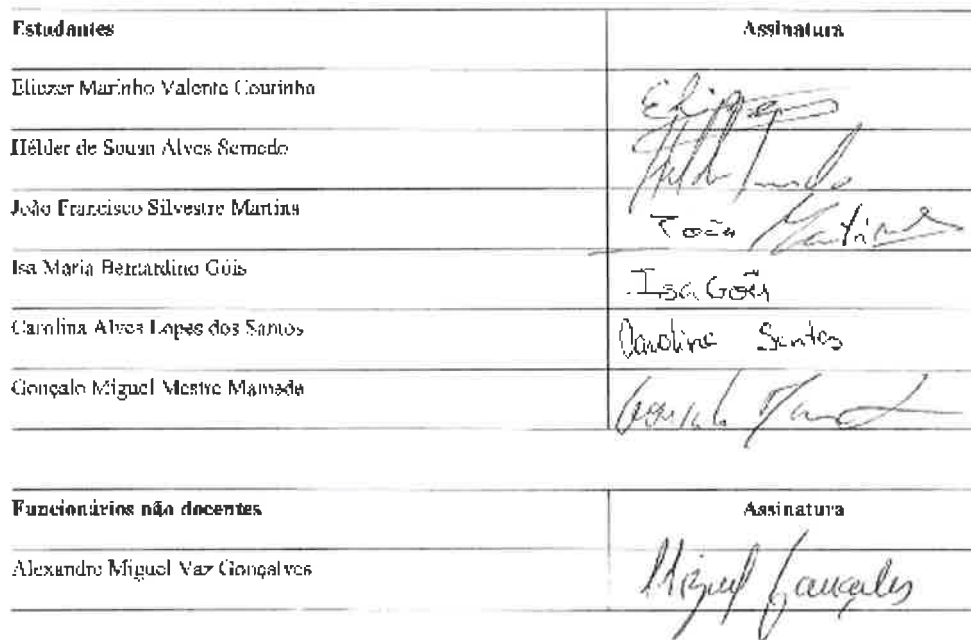 Estudantes Assinatura
Eliezer Marinho Valente Courinho
Hélder de Sousa Alves Semedo
João Francisco Silvestre Martins João Martins
Isa Maria Bernardino Góis Isa Góis
Carolina Alves Lopes dos Santos Carolina Santos
Gonçalo Miguel Mestre Mamede
Funcionários não docentes Assinatura
Alexandre Miguel Vaz Gonçalves Miguel Gonçalves